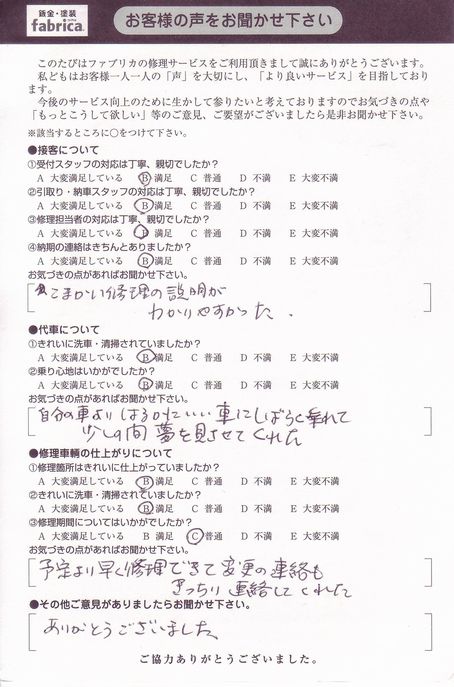 鈑金・塗装
fabrica
お客様の声をお聞かせ下さい
このたびはファブリカの修理サービスをご利用頂きまして誠にありがとうございます。
私どもはお客様一人一人の「声」を大切にし、「より良いサービス」を目指しており
ます。
今後のサービス向上のために生かして参りたいと考えておりますのでお気づきの点や
「もっとこうして欲しい」等のご意見、ご要望がございましたら是非お聞かせ下さい。
※該当するところに○をつけて下さい。
●接客について
①受付スタッフの対応は丁寧、親切でしたか?
A 大変満足している B 満足 C 普通 D 不満 E 大変不満
②引取り・納車スタッフの対応は丁寧、親切でしたか?
A 大変満足している B 満足 C 普通 D 不満 E 大変不満
③修理担当者の対応は丁寧、親切でしたか?
A 大変満足している B 満足 C 普通 D 不満 E 大変不満
④納期の連絡はきちんとありましたか?
A 大変満足している B 満足 C 普通 D 不満 E 大変不満
お気づきの点があればお聞かせ下さい。
こまかい修理の説明が
わかりやすかった.
●代車について
①きれいに洗車・清掃されていましたか?
A 大変満足している B 満足 C 普通 D 不満 E 大変不満
②乗り心地はいかがでしたか?
A 大変満足している B 満足 C 普通 D 不満 E 大変不満
お気づきの点があればお聞かせ下さい。
自分の車よりはるかにいい車にしばらく乗れて
少しの間夢を見させてくれた
●修理車輌の仕上がりについて
①修理箇所はきれいに仕上がっていましたか?
A 大変満足している B 満足 C 普通 D 不満 E 大変不満
②きれいに洗車・清掃されていましたか?
A 大変満足している B 満足 C 普通 D 不満 E 大変不満
③修理期間についてはいかがでしたか?
A 大変満足している B 満足 C 普通 D 不満 E 大変不満
お気づきの点があればお聞かせ下さい。
予定より早く修理できて変更の連絡も
きっちり連絡してくれた
●その他ご意見がありましたらお聞かせ下さい。
ありがとうございました
ご協力ありがとうございました。